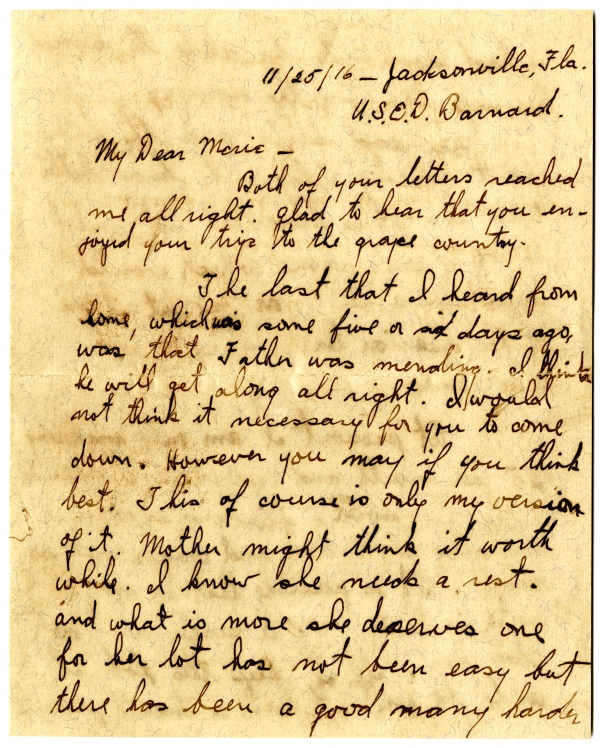 11/25/16 – Jacksonville, Fla.
U.S.E.D. Barnard.
My Dear Marie –
Both of your letters reached
me all right. glad to hear that you en-
joyed your trip to the grape country.
The last that I heard from
home, which was some five or six days ago,
was that Father was mending. I think
he will get along all right. I would
not think it necessary for you to come
down. However you may if you think
best. This of course is only my version
of it. Mother might think it worth
while. I know she needs a rest.
and what is more she deserves one
for her lot has not been easy but
there has been a good many harder